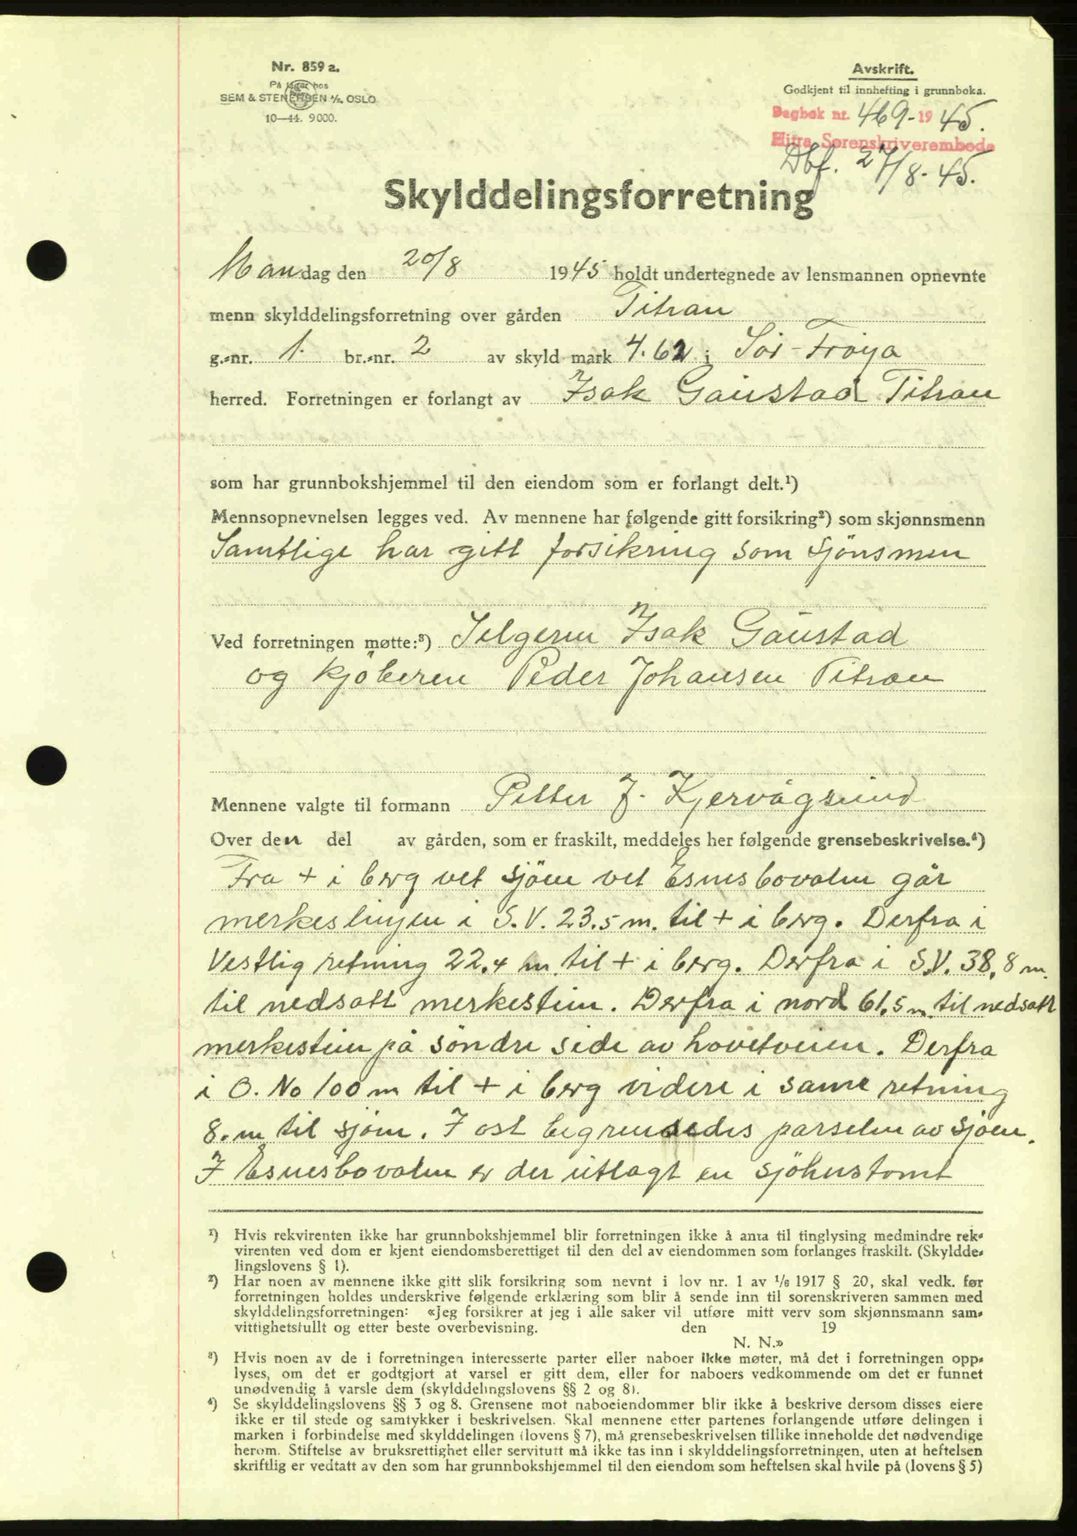 Nr. 859 a.
På lager hos
SEM & STENERSEN A/S. OSLO
10—44. 9000.
Avskrift.
Godkjent til innhefting i grunnboka.
Dagbok nr. 469-1945.
Hitra Sorenskriverembede
Dbf. 27/8-45.
Skylddelingsforretning
Mandag den 20/8 1945 holdt undertegnede av lensmannen opnevnte
menn skylddelingsforretning over gården Titran
g.-nr. 1. br.-nr. 2 av skyld mark 4.62 i Sør-Frøya
herred. Forretningen er forlangt av Isak Gaustad Titran
som har grunnbokshjemmel til den eiendom som er forlangt delt.¹)
Mennsopnevnelsen legges ved. Av mennene har følgende gitt forsikring²) som skjønnsmenn
Samtlige har gitt forsikring som sjönsmen
Ved forretningen møtte:³) Selgeren Isak Gaustad
og kjöberen Peder Johansen Titran
Mennene valgte til formann Petter J. Kjervågsund
Over den del av gården, som er fraskilt, meddeles her følgende grensebeskrivelse.⁴)
Fra + i berg vet sjöen vet Esnesbovalen går
merkeslinjen i S.V. 23.5 m. til + i berg. Derfra i
Vestlig retning 22.4 m til + i berg. Derfra i S.V. 38,8 m.
til nedsatt merkestein. Derfra i nord 61.5 m. til nedsatt
merkestein på söndre side av hovetveien. Derfra
i O. No 100 m til + i berg videre i same retning
8. m til sjöen. I ost begrensedes parselen av sjöen.
I Esnesbovalen er der utlagt en sjöhustomt
¹) Hvis rekvirenten ikke har grunnbokshjemmel blir forretningen ikke å anta til tinglysing medmindre rek-
virenten ved dom er kjent eiendomsberettiget til den del av eiendommen som forlanges fraskilt. (Skyldde-
lingslovens § 1).
²) Har noen av mennene ikke gitt slik forsikring som nevnt i lov nr. 1 av 1/6 1917 § 20, skal vedk. før
forretningen holdes underskrive følgende erklæring som blir å sende inn til sorenskriveren sammen med
skylddelingsforretningen: «Jeg forsikrer at jeg i alle saker vil utføre mitt verv som skjønnsmann sam-
vittighetsfullt og etter beste overbevisning. den 19
N. N.»
³) Hvis noen av de i forretningen interesserte parter eller naboer ikke møter, må det i forretningen opp-
lyses, om det er godtgjort at varsel er gitt dem, eller for naboers vedkommende om det er funnet
unødvendig å varsle dem (skylddelingslovens §§ 2 og 8).
⁴) Se skylddelingslovens §§ 3 og 8. Grensene mot naboeiendommer blir ikke å beskrive dersom disses eiere
ikke er til stede og samtykker i beskrivelsen. Skal mennene etter partenes forlangende utføre delingen i
marken i forbindelse med skylddelingen (lovens § 7), må grensebeskrivelsen tillike inneholde det nødvendige
herom. Stiftelse av bruksrettighet eller servitutt må ikke tas inn i skylddelingsforretningen, uten at heftelsen
skriftlig er vedtatt av den som har grunnbokshjemmel til den eiendom som heftelsen skal hvile på (lovens § 5)